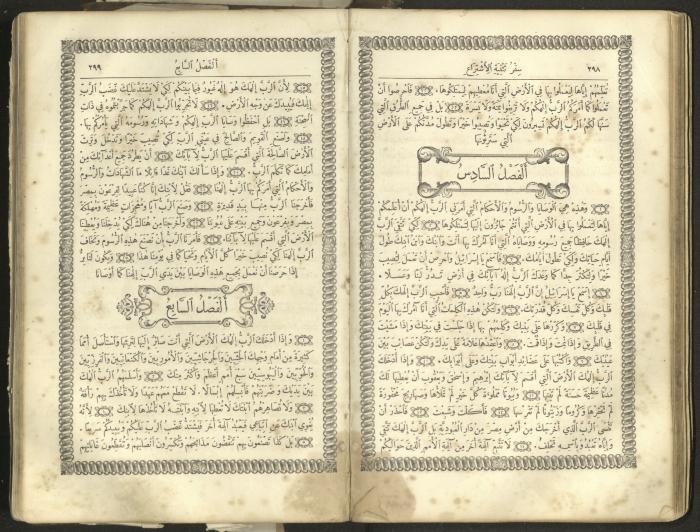 ٢٩٨ سفر تثنية الاشتراع
تعلمهم إياها فيعملوا بها في الأرض التي أنا معطيهم ليمتلكوها. فاحرصوا أن
تعملوا كما أمركم الرب إلهكم ولا تزيغوا يمنة ولا يسرة بل في جميع الطرق التي
سنها لكم الرب إلهكم تسيرون لكي تحيوا وتصيبوا خيرا وتطول مدتكم على الأرض
التي سترثونها
ألفصل السادس
وهذه هي الوصايا والرسوم والأحكام التي أمرني الرب إلهكم أن أعلمكم
إياها لتعملوا بها في الأرض التي أنتم جائزون إليها لتمتلكوها لكي تتقي الرب
إلهك حافظا جميع رسومه ووصاياه التي أنا آمرك بها أنت وابنك وابن ابنك طول
أيام حياتك ولكي تطول أيامك. فاسمع يا إسرائيل واحرص أن تعمل لتصيب
خيرا وتكثر جدا كما وعدك الرب إله آبائك في أرض تدر لبنا وعسلا.
إسمع يا إسرائيل إن الرب إلهنا رب واحد فأحبب الرب إلهك بكل
قلبك وكل نفسك وكل قدرتك. ولتكن هذه الكلمات التي أنا آمرك بها اليوم
في قلبك وكررها على بنيك وكلمهم بها إذا جلست في بيتك وإذا مشيت
في الطريق وإذا نمت وإذا قمت. واعقدها علامة على يدك ولتكن عصائب بين
عينيك واكتبها على عضائد أبواب بيتك وعلى أبوابك. وإذا أدخلك
الرب إلهك الأرض التي أقسم لآبائك إبرهيم وإسحق ويعقوب أن يعطيها لك
مدنا عظيمة حسنة لم تبنها وبيوتا مملوءة كل خير لم تملأها وصهاريج محفورة
لم تحفرها وكروما وزيتونا لم تغرسها فأكلت وشبعت فاحذر أن
تنسى الرب الذي أخرجك من أرض مصر من دار العبودية بل الرب إلهك تتقي
وإياه تعبد وباسمه تحلف. لا تتبع آلهة أخر من آلهة الأمم الذين حواليكم
ألفصل السابع ٢٩٩
لأن الرب إلهك هو إله غيور فيما بينكم لكي لا يشتد عليك غضب الرب
إلهك فيبيدك عن وجه الأرض. لا تجربوا الرب إلهكم كما جربتموه في ذات
المحنة بل احفظوا وصايا الرب إلهكم وشهاداته ورسومه التي يأمركم بها.
واصنع القويم والصالح في عيني الرب لكي تصيب خيرا وتدخل وترث
الأرض الصالحة التي أقسم عليها الرب لآبائك أن يطرد جميع أعدائك من
أمامك كما تكلم الرب. وإذا سألك ابنك غدا قائلا ما الشهادات والرسوم
والأحكام التي أمركم بها الرب إلهنا فقل لابنك إنا كنا عبيدا لفرعون بمصر
فأخرجنا الرب منها بيد قديرة وصنع الرب آيات ومعجزات عظيمة ومهلكة
بمصر وبفرعون وجميع بيته على عيوننا وأخرجنا من هناك لكي يدخلنا ويعطينا
الأرض التي أقسم عليها لآبائنا. فأمرنا الرب أن نصنع هذه الرسوم ونخاف
الرب إلهنا لكي نصيب خيرا كل الأيام ونحيا كما في يومنا هذا ويكون لنا بر
إذا حرصنا أن نعمل بجميع هذه الوصايا بين يدي الرب إلهنا كما أوصانا
ألفصل السابع
وإذا أدخلك الرب إلهك الأرض التي أنت صائر إليها لترثها واستأصل أمما
كثيرة من أمام وجهك الحثيين والجرجاشيين والأموريين والكنعانيين والفرزيين
والحويين واليبوسيين سبع أمم أعظم وأكثر منك وأسلمهم الرب إلهك
بين يديك وضربتهم فأبسلهم إبسالا. لا تقطع معهم عهدا ولا تأخذك بهم رأفة
ولا تصاهرهم ابنتك لا تعطها لابنه وابنته لا تأخذها لابنك لأنه
يغوي ابنك عن اتباعي فيعبد آلهة أخر فيشتد غضب الرب عليكم ويبيدكم سريعا.
بل كذا تصنعون بهم تنقضون مذابحهم وتكسرون أنصابهم وتقطعون غاباتهم